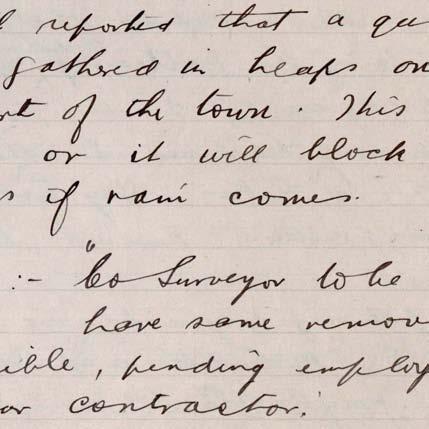 reported that a qu
gathered in heaps on
of the town. This
or it will block
if rain comes.
:- "Co Surveyor to be
have same remov
ible, pending employ
contractor.